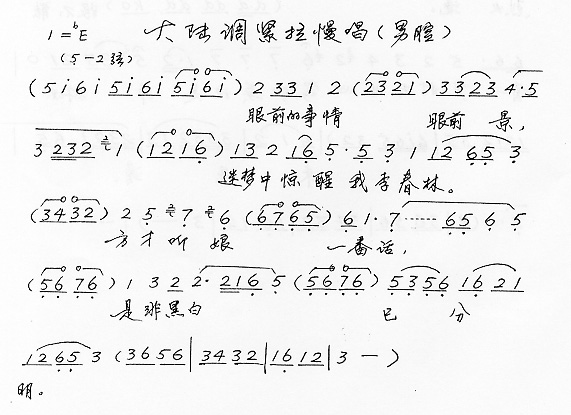 1=ᵇE 大陆调紧拉慢唱(男腔)
(5-2弦)
(5i6i 5i6i 5i6i) 2 33 1 2 (2321) 3323 4·5
眼前的事情 眼前 景,
3 232 1 (1216) 132 16 5·5 3 1 12 65 3
迷梦中惊醒 我李春林。
(3432) 2 5 7 6 (6765) 6 1·7……65 6 5
方才听 娘 一番话,
(5676) 1 3 2 2·216 5 (5676) 5356 16 21
是非黑白 已 分
1265 3 (3656|3432|1612|3 —)
明。